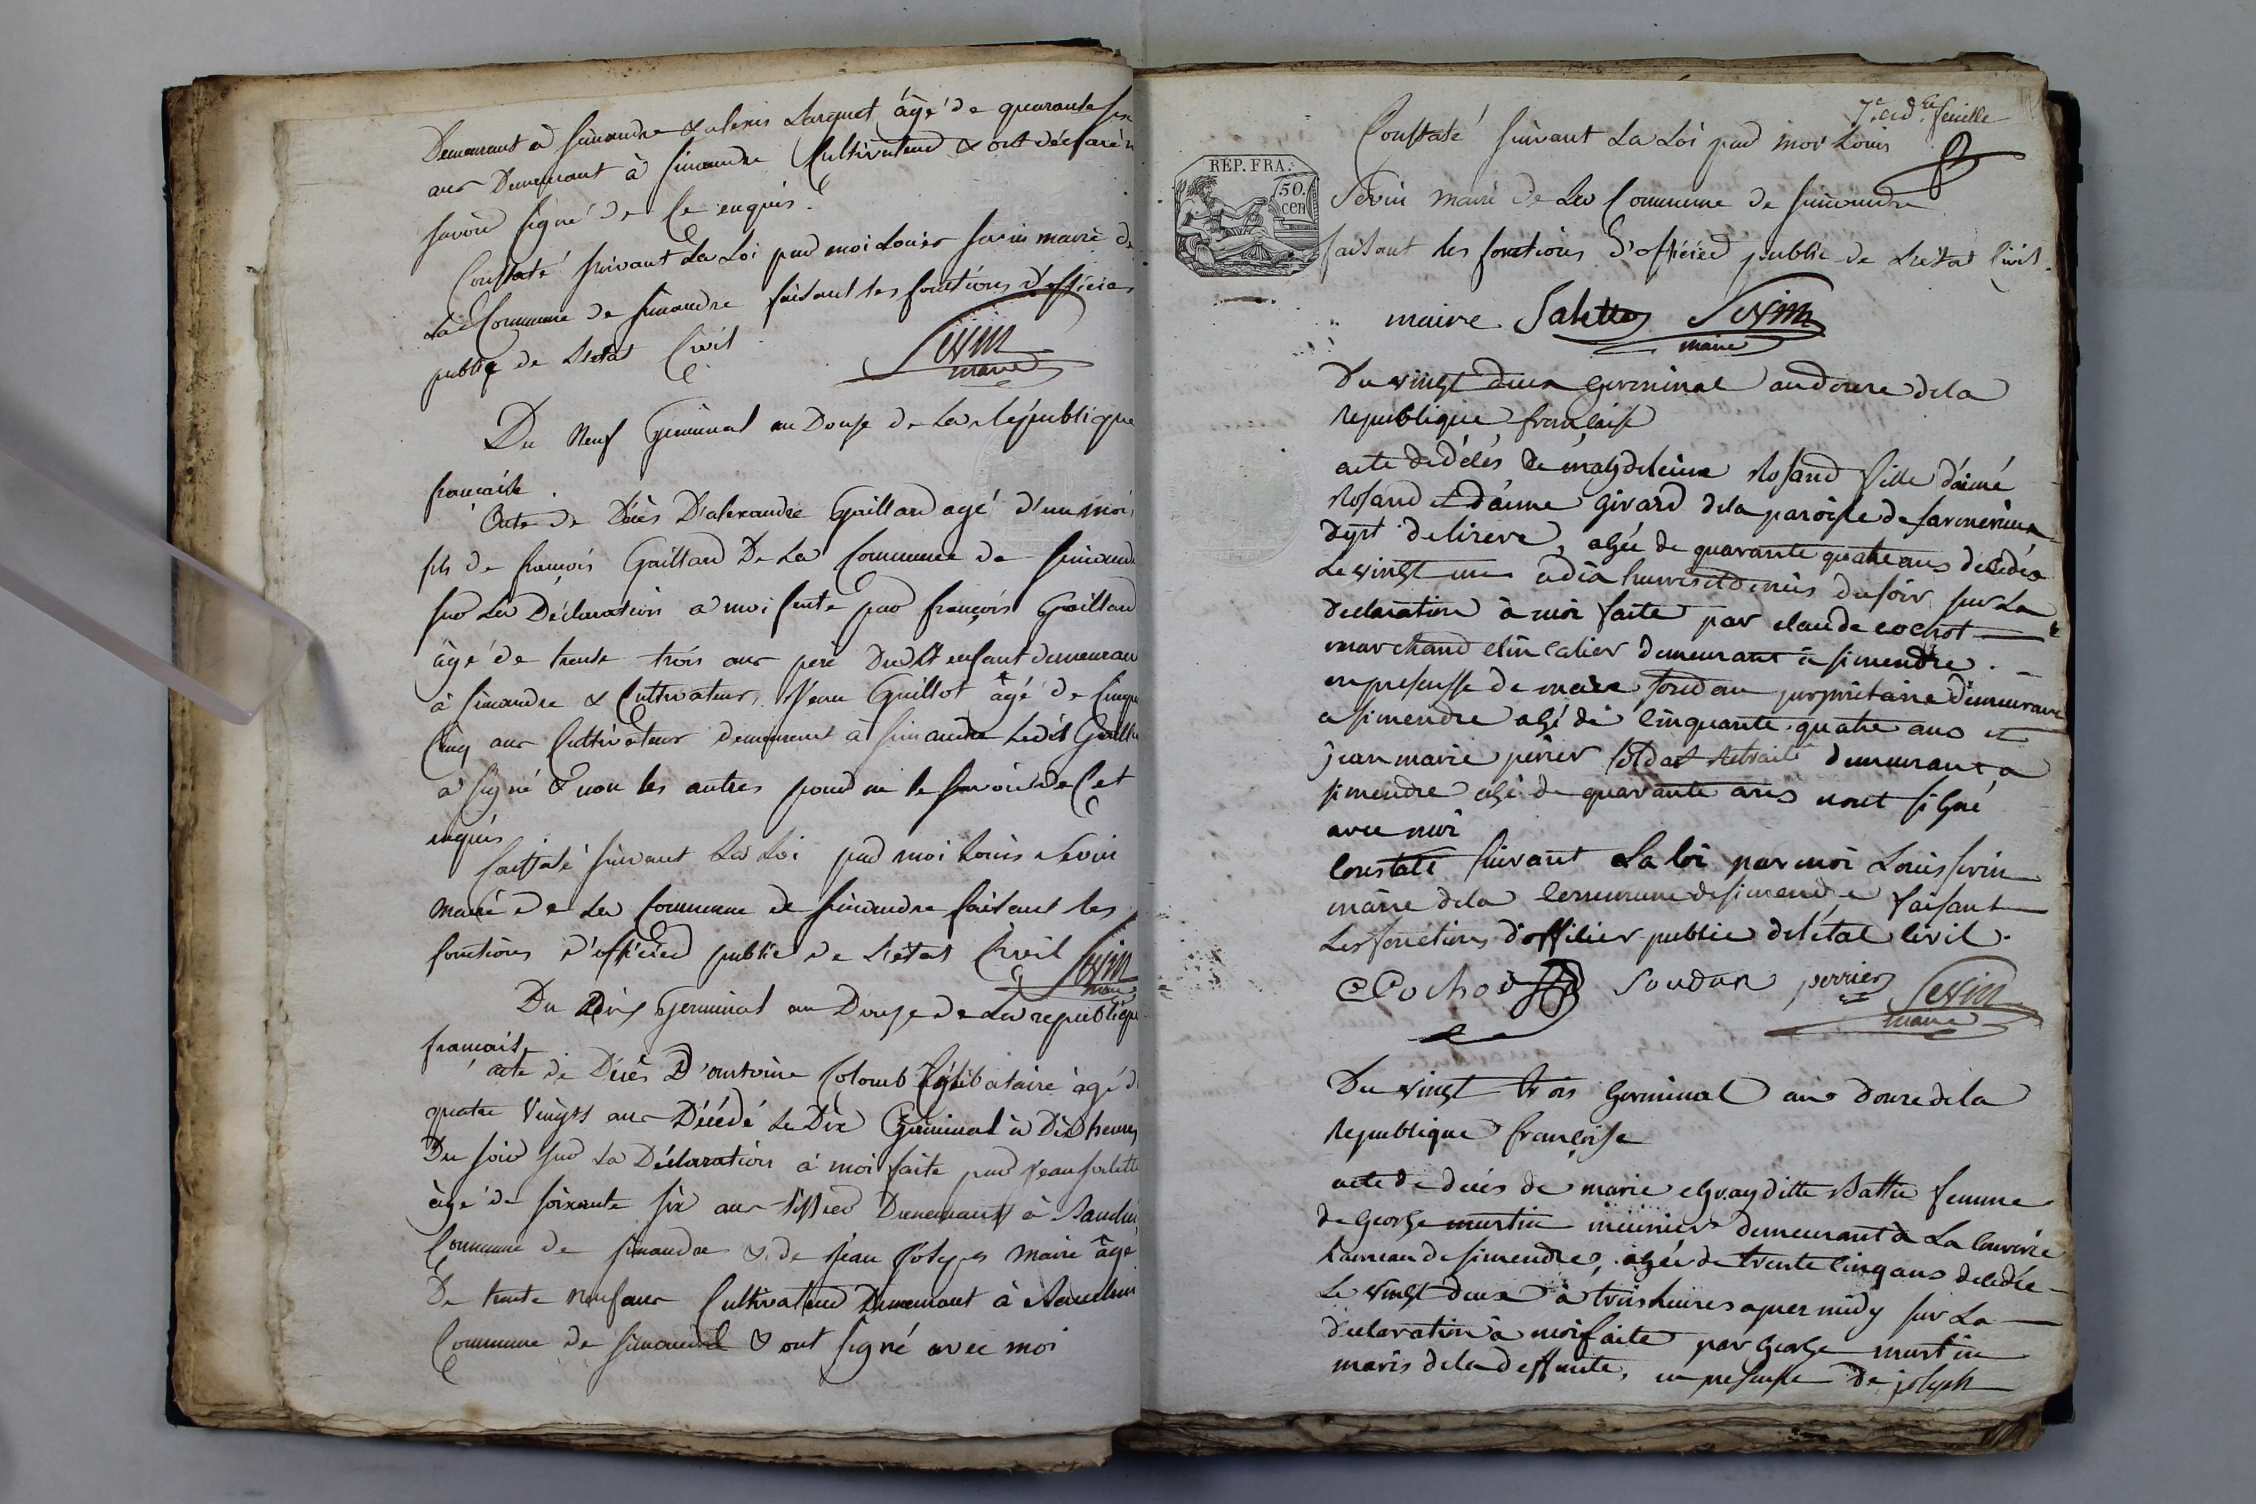 Demeurant à Simandre & alexis Larquet âgé de quarante six
ans Demeurant à Simandre Cultivateur & ont déclaré n
savoir signé de Ce enquis.
Constaté suivant La Loi par moi Louis Sevin maire de
La Commune de Simandre faisant les fonctions d'officier
public de L'état Civil
Sevin
maire
Du Neuf Germinal an Douze de La république
française
Acte de Décès D'alexandre Gaillard agé d'un moi
fils de françois Gaillard De La Commune de Simand
sur La Déclaration a moi faite par françois Gaillard
âgé de trente trois ans père Dudit enfant demeuran
à Simandre & Cultivateur, Jean Guillot âgé de Cinqu
Cinq ans Cultivateur demeurant à Simandre Ledit Gaill
à signé & non les autres pour ne le savoir de Cet
enquis
Constaté suivant La Loi par moi Louis Sevin
maire de La Commune de Simandre faisant les
fonctions d'officier public de L'état Civil
Sevin
maire
Du Dix Germinal an Douze de La républiqu
française
acte de Décès D'antoine Colomb Célibataire âgé d
quatre Vingts ans Décédé Le Dix Germinal à Dix heures
Du soir sur La Déclaration à moi faite par Jean salette
âgé de soixante six ans Tissier Demeurant à
Commune de Simandre & de Jean Joseph Maire âgé
De trente neuf ans Cultivateur Demeurant à
Commune de Simandre & ont signé avec moi
7.e et d.re feuille
Constaté suivant La Loi par moi Louis
REP. FRA.
50.
cen
Sevin maire de La Commune de Simandre
faisant les fonctions D'officier public de L'état Civil.
maire Salette Sevin
maire
Du vingt deux Germinal an douze de la
republique française
acte de décés de magdeleine Rosand fille d'aimé
Rosand et d'anne Girard de la paroisse de
dept de lizere, agée de quarante quatre ans décédée
Le vingt un a dix heures et demis du soir sur La
declaration à moi faite par claude cochot
marchand clincalier demeurant à simendre.
en presensse de maire soudan propriétaire demeurant
a simendre agé de cinquante quatre ans et
jean marie périer soldat Retraité demeurant a
simendre agé de quarante ans nont signé
avec moi
Constaté suivant La loi par moi Louis sevin
maire de la commune de simendre faisant
Les fonctions d'officier public de l'état civil.
Cochod soudan perrier Sevin
maire
Du vingt trois Germinal an douze de la
Republique françoise
acte de decés de marie ditte Battu femme
de George martin meunier demeurant à La
hameau de simendre, agée de trente cinq ans décédée
Le vingt deux à trois heures apres midy sur La
declaration à moi faite par George martin
maris de la deffunte, en presensse de joseph